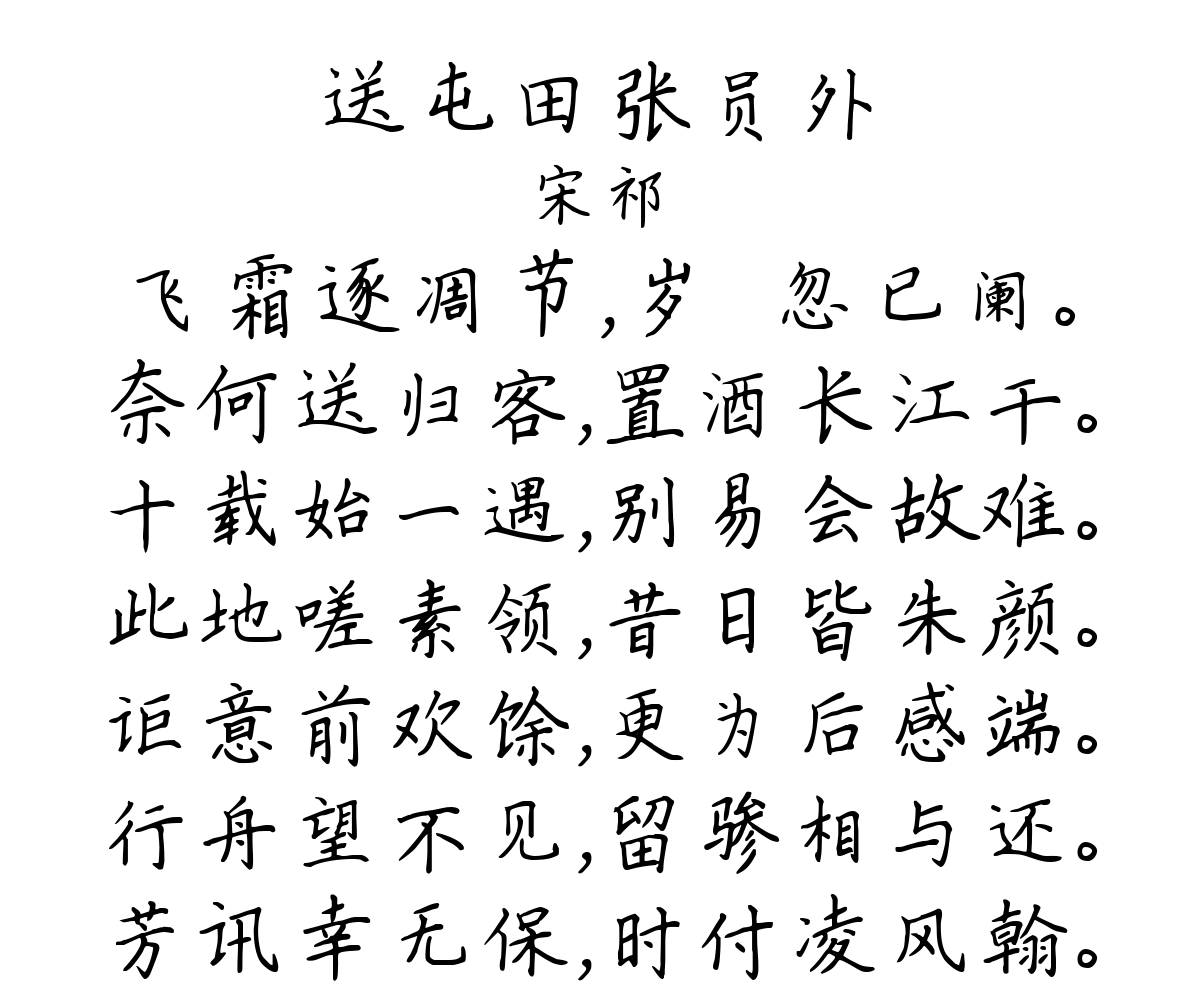 送屯田张员外
宋祁
飞霜逐凋节,岁 忽已阑。
奈何送归客,置酒长江干。
十载始一遇,别易会故难。
此地嗟素领,昔日皆朱颜。
讵意前欢馀,更为后感端。
行舟望不见,留骖相与还。
芳讯幸无保,时付凌风翰。